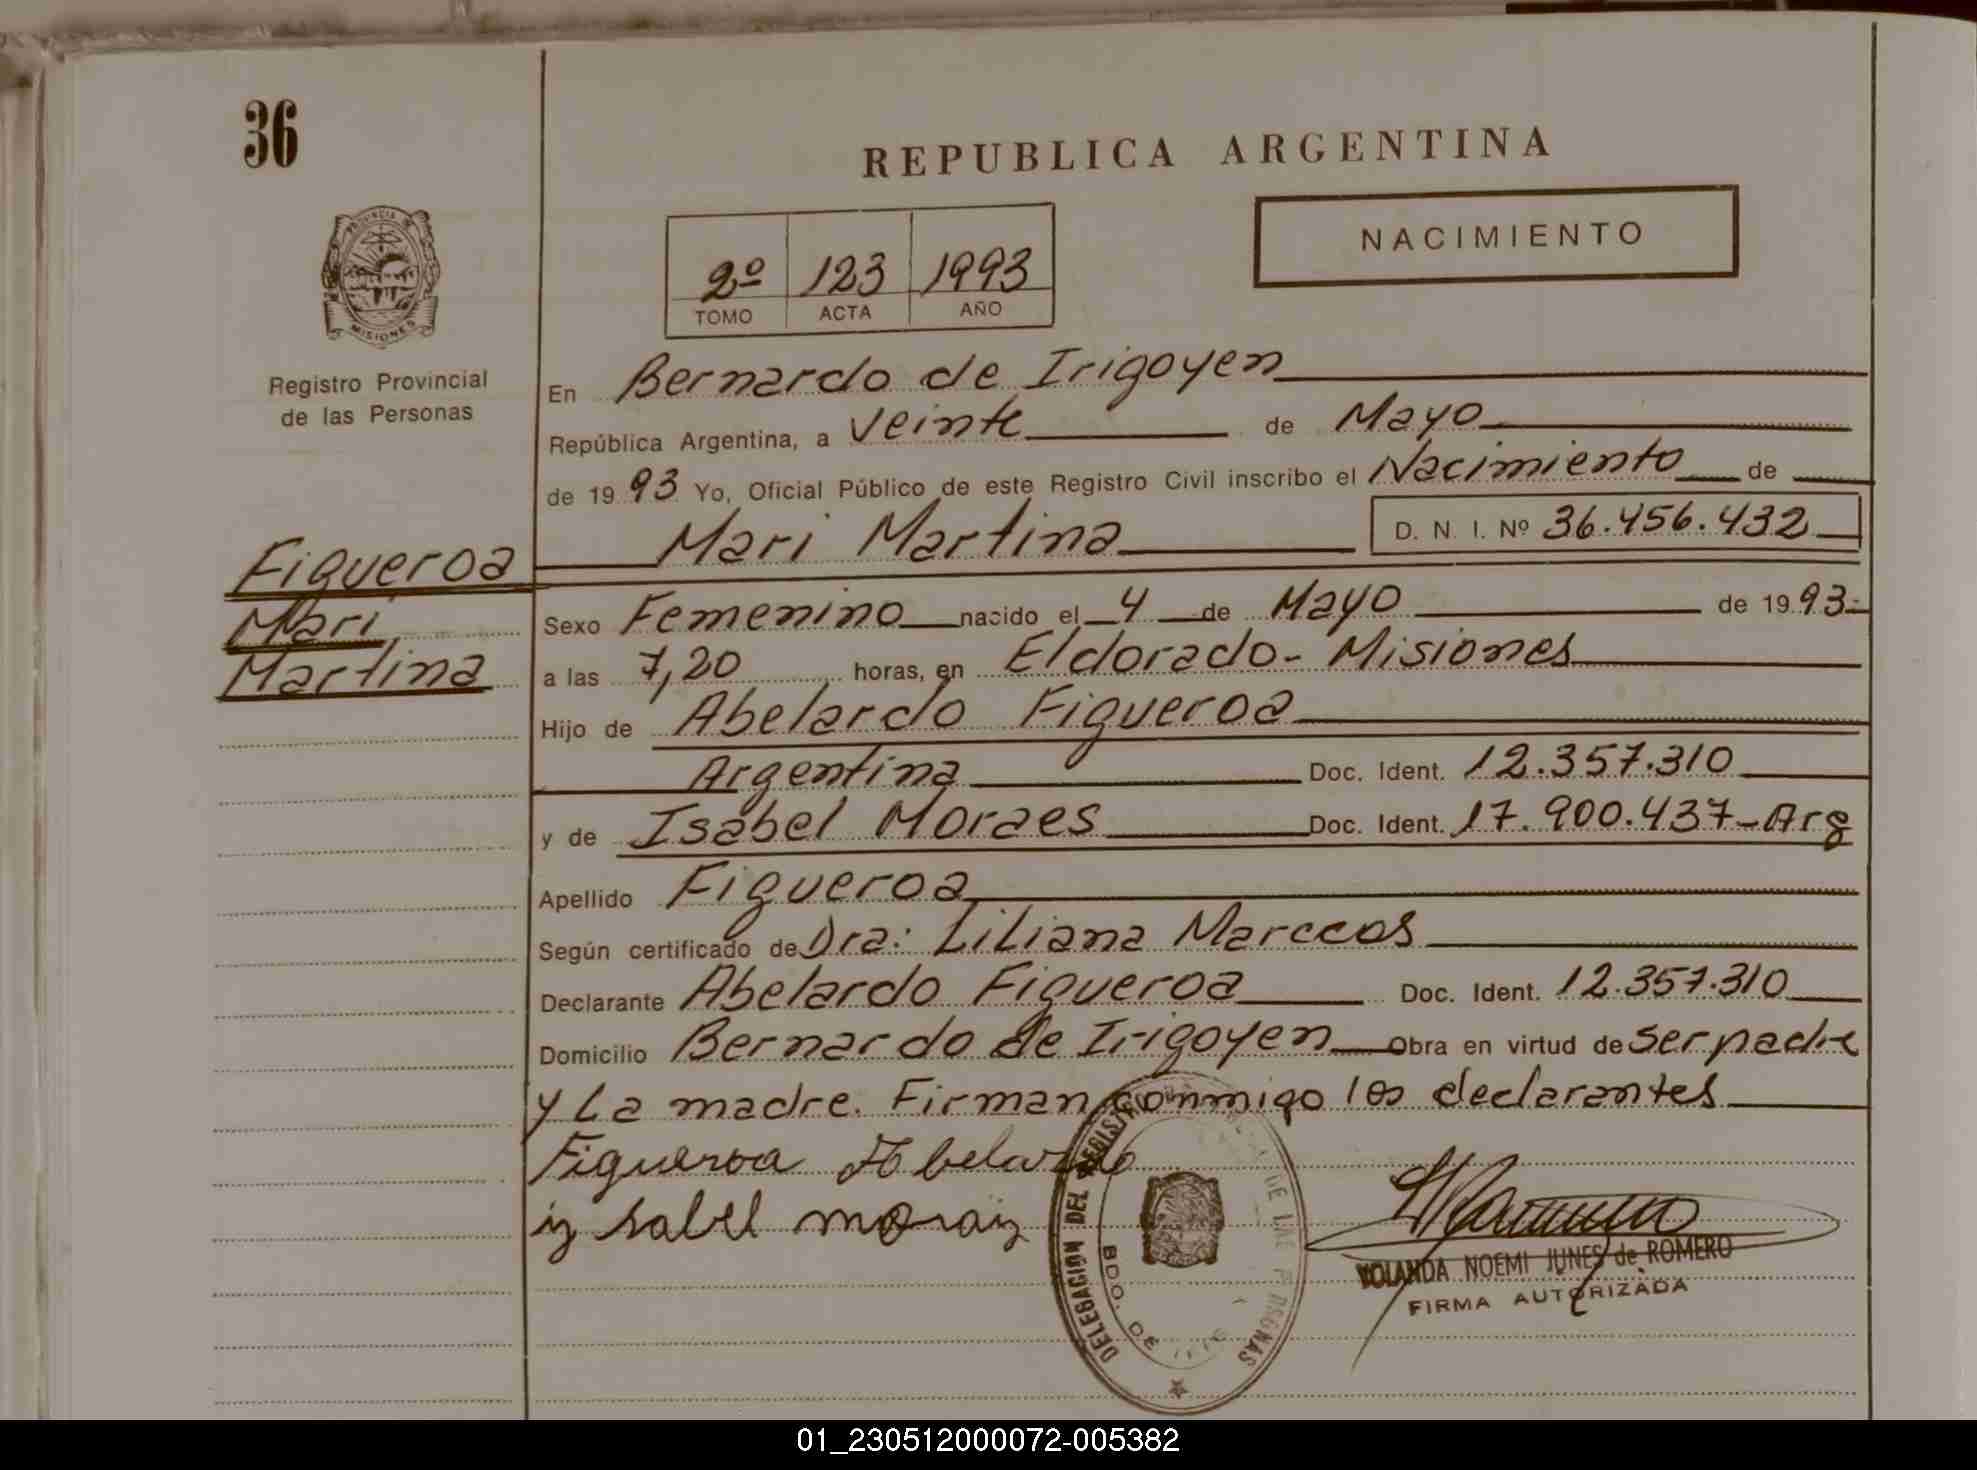 36
REPUBLICA ARGENTINA
NACIMIENTO
PROVINCIA DE
MISIONES
2º 123 1993
TOMO ACTA AÑO
Registro Provincial
de las Personas
En Bernardo de Irigoyen
República Argentina, a Veinte de Mayo
de 19 93 Yo, Oficial Público de este Registro Civil inscribo el Nacimiento de
Mari Martina D. N. I. Nº 36.456.432
Figueroa
Mari
Martina
Sexo Femenino nacido el 4 de Mayo de 19 93
a las 7,20 horas, en Eldorado - Misiones
Hijo de Abelardo Figueroa
Argentina Doc. Ident. 12.357.310
y de Isabel Moraes Doc. Ident. 17.900.437-Arg
Apellido Figueroa
Según certificado de Dra: Liliana Marccos
Declarante Abelardo Figueroa Doc. Ident. 12.357.310
Domicilio Bernardo de Irigoyen Obra en virtud de ser padre
y La madre. Firman conmigo los declarantes
Figueroa Abelardo
iy sabel moraiz
DELEGACION DEL REGISTRO DE LAS PERSONAS
BDO. DE IRIG
YOLANDA NOEMI JUNES de ROMERO
FIRMA AUTORIZADA
01_230512000072-005382